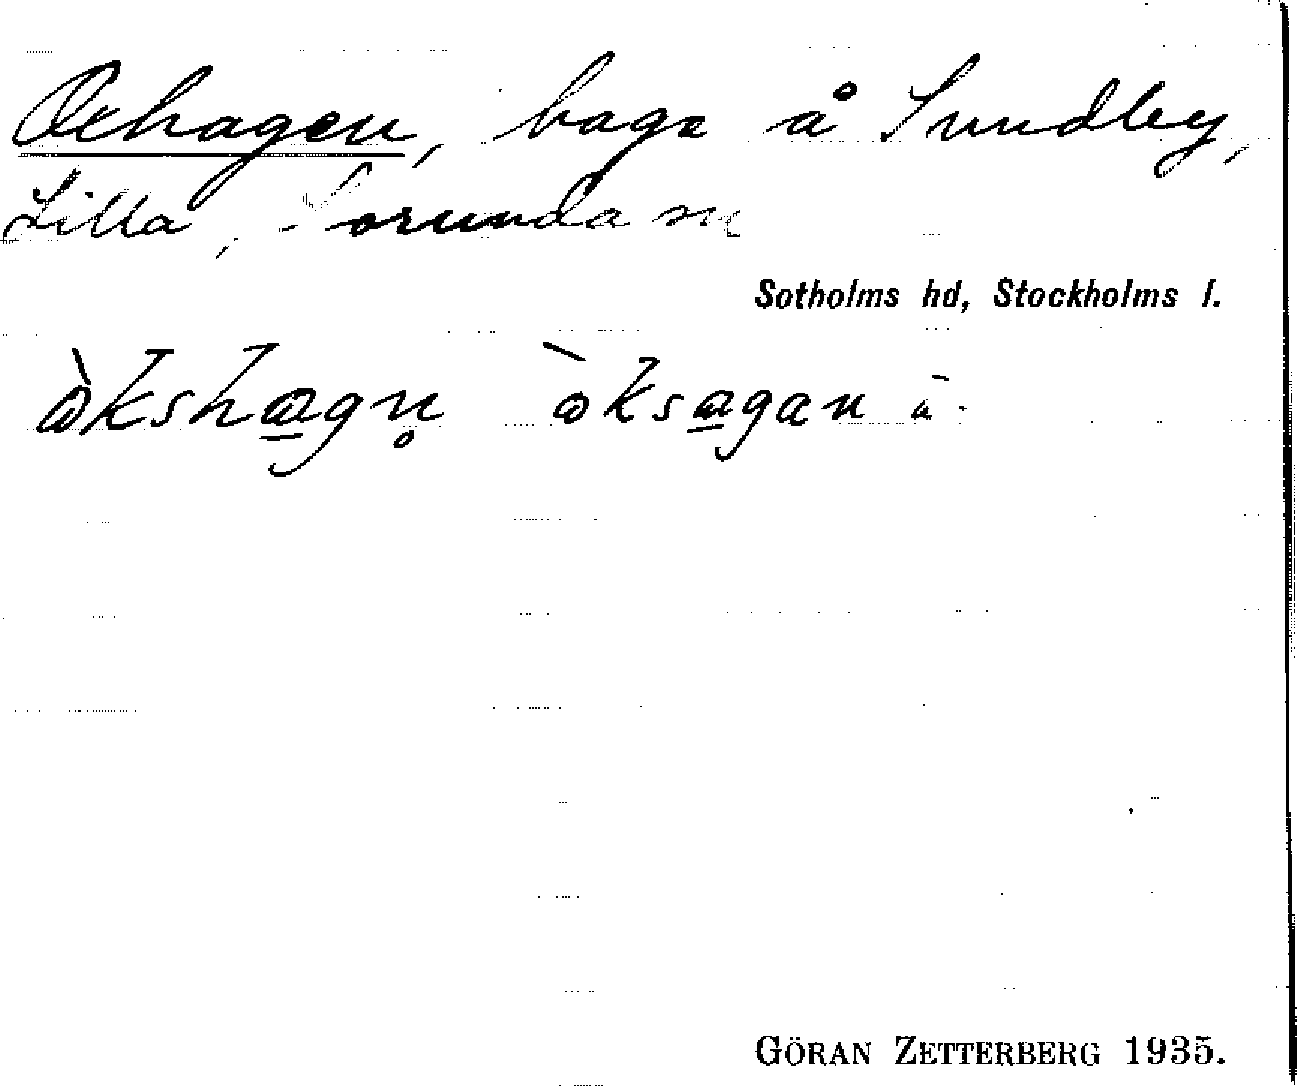 Oxhagen, hage å Sundby,
Lilla, Sorunda sn
Sotholms hd, Stockholms l.
ὼkshag̲n̥ ὼksa̲gan
GÖRAN ZETTERBERG 1935.